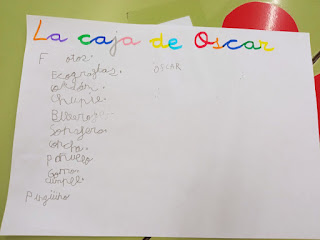 La caja de Oscar
Fotos.
Ecografías. OSCAR
Chupete
Sonajero
concha.
pañuelo
Gorro.
cumple.
Pingüino